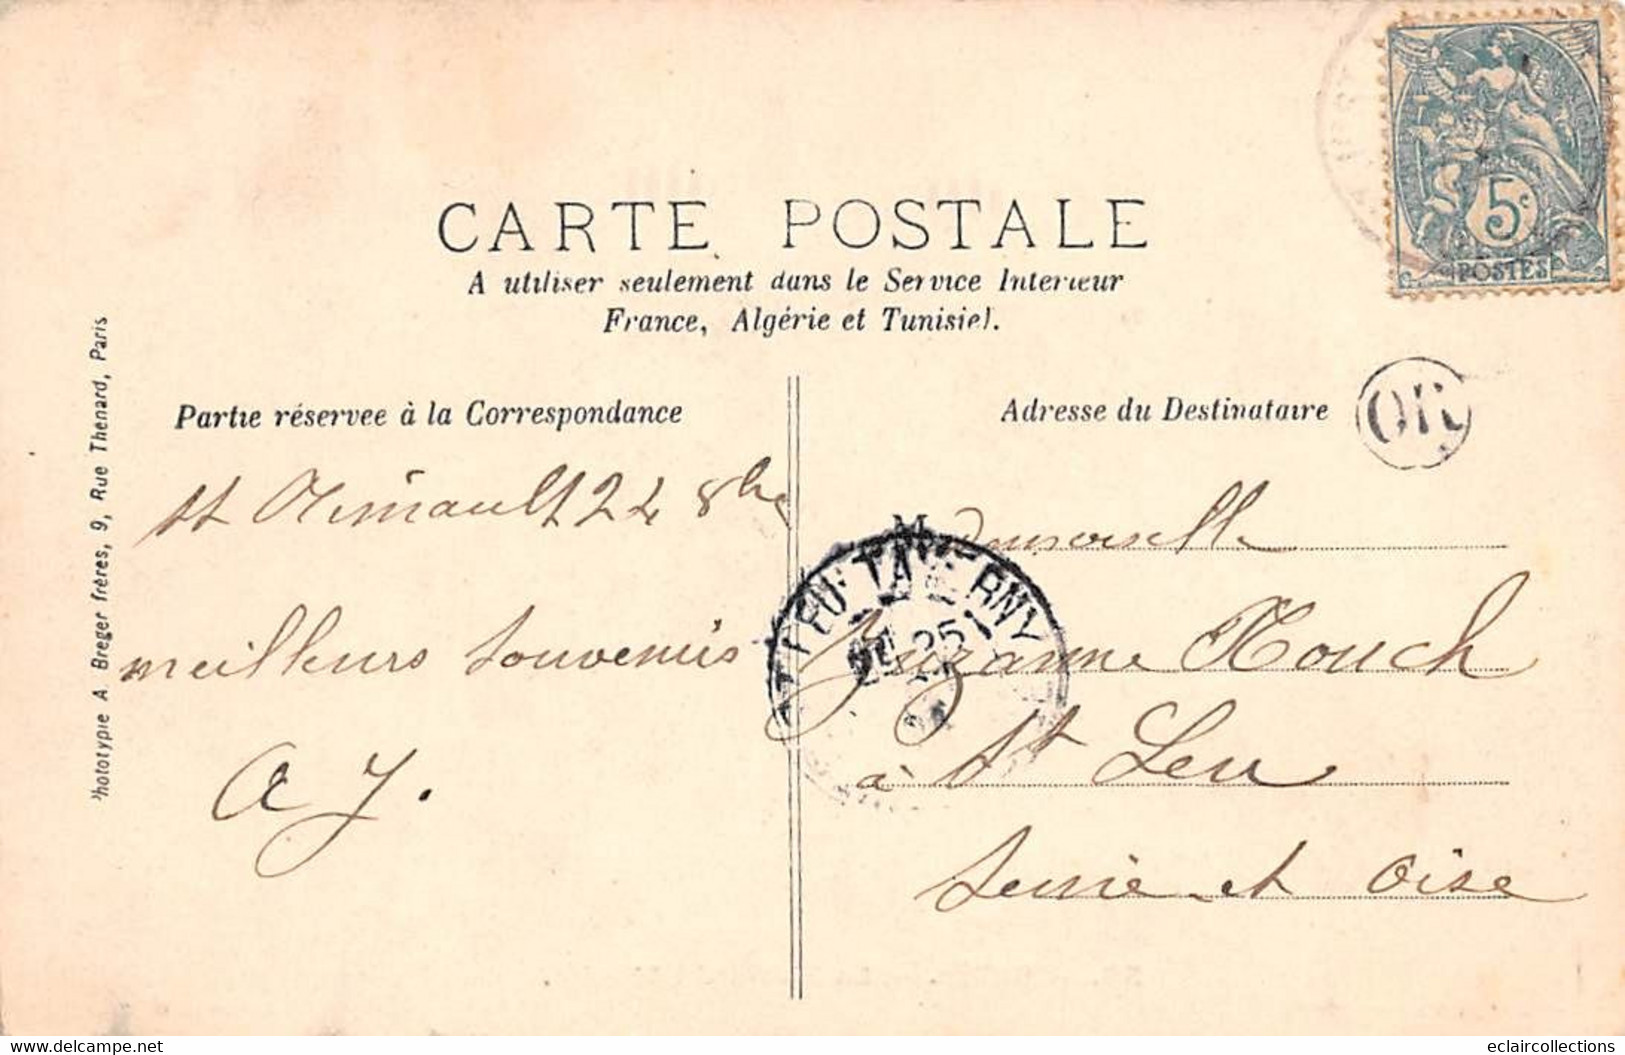 CARTE POSTALE
A utiliser seulement dans le Service Interieur
France, Algérie et Tunisie).
5c
POSTES
Phototypie A. Breger frères, 9, Rue Thenard, Paris
Partie réservee à la Correspondance
Adresse du Destinataire
OR
St 24 8bre
meilleurs souvenirs
A J.
Mademoiselle
Suzanne Houch
à St Leu
Seine et Oise
TAVERNY
25
eclaircollections
www.delcampe.net